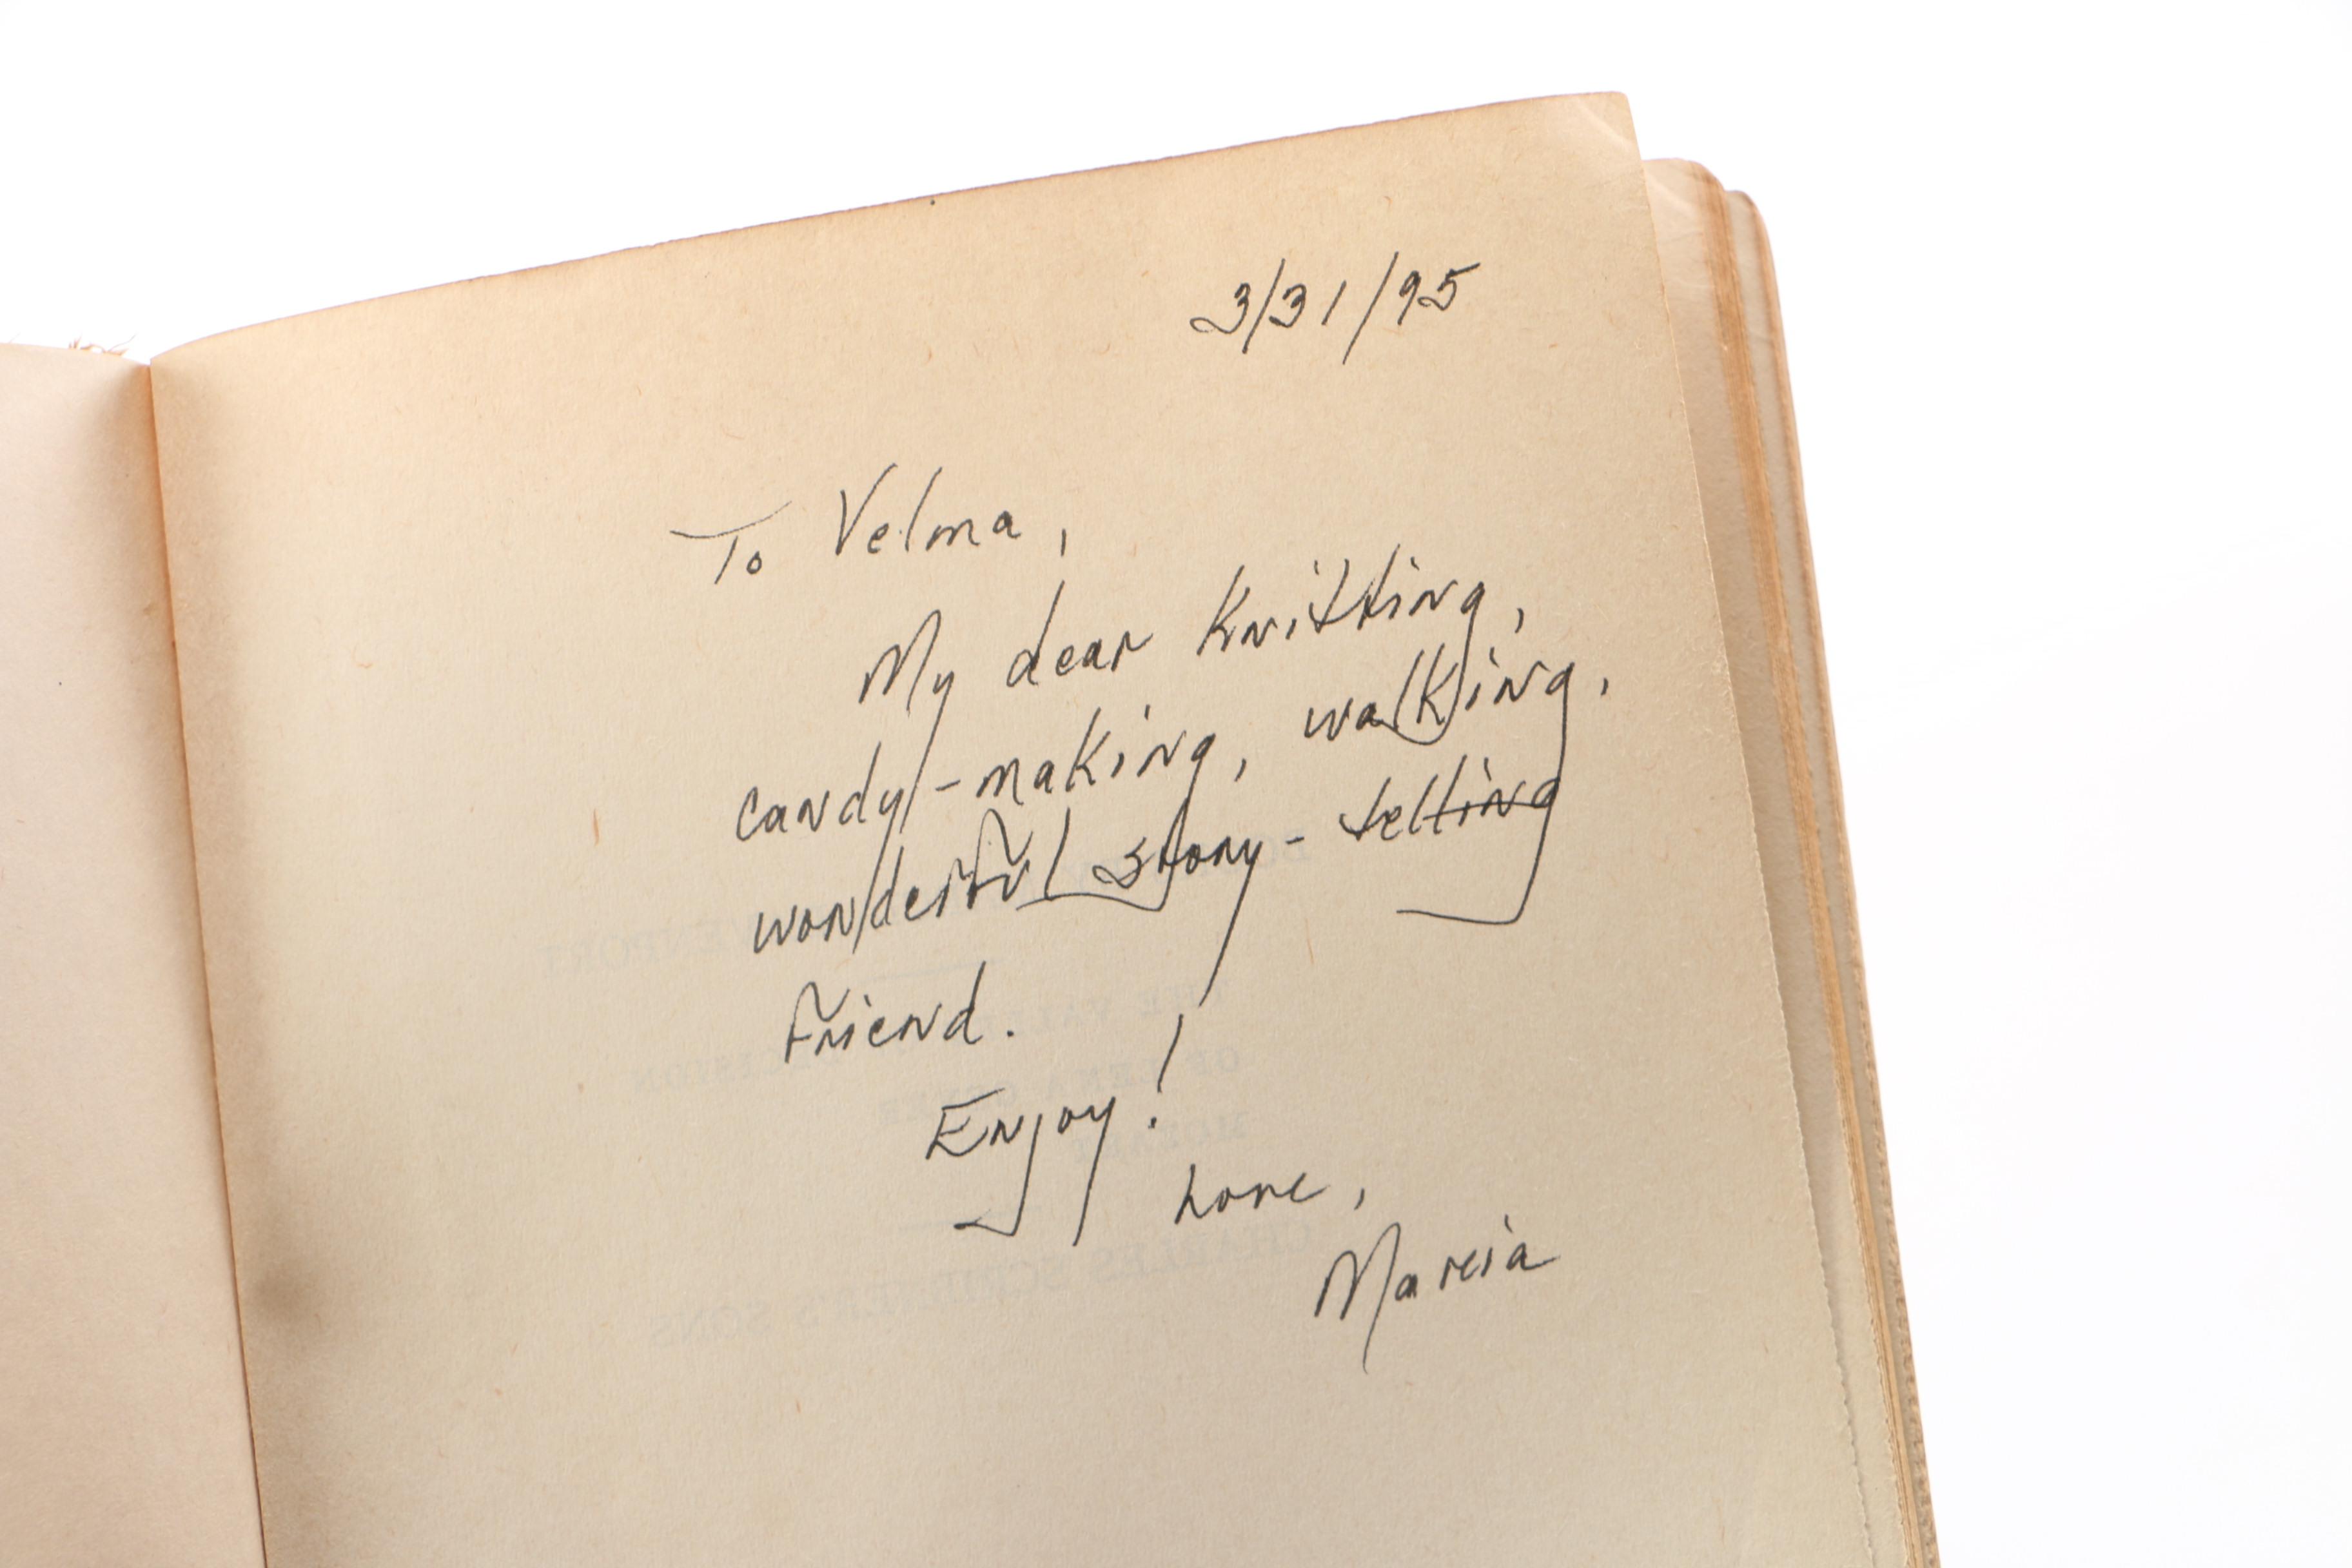 3/31/95
To Velma,
My dear knitting,
candy-making, walking,
wonderful story-telling
friend.
Enjoy!
Love,
Marcia
CHARLES SCRIBNER'S SONS